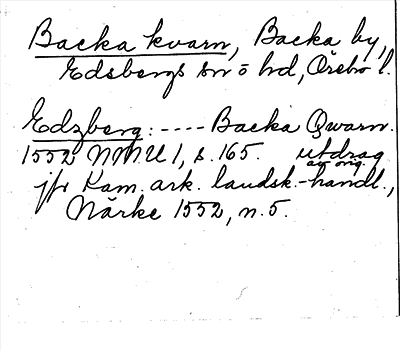 Backa kvarn, Backa by,
Edsbergs sn o hd, Örebro l.
Edzberg: ---- Backa Qwarn.
1552 NMU 1, s. 165. utdrag
av orig.
jfr Kam. ark. landsk.-handl.,
Närke 1552, n. 5.